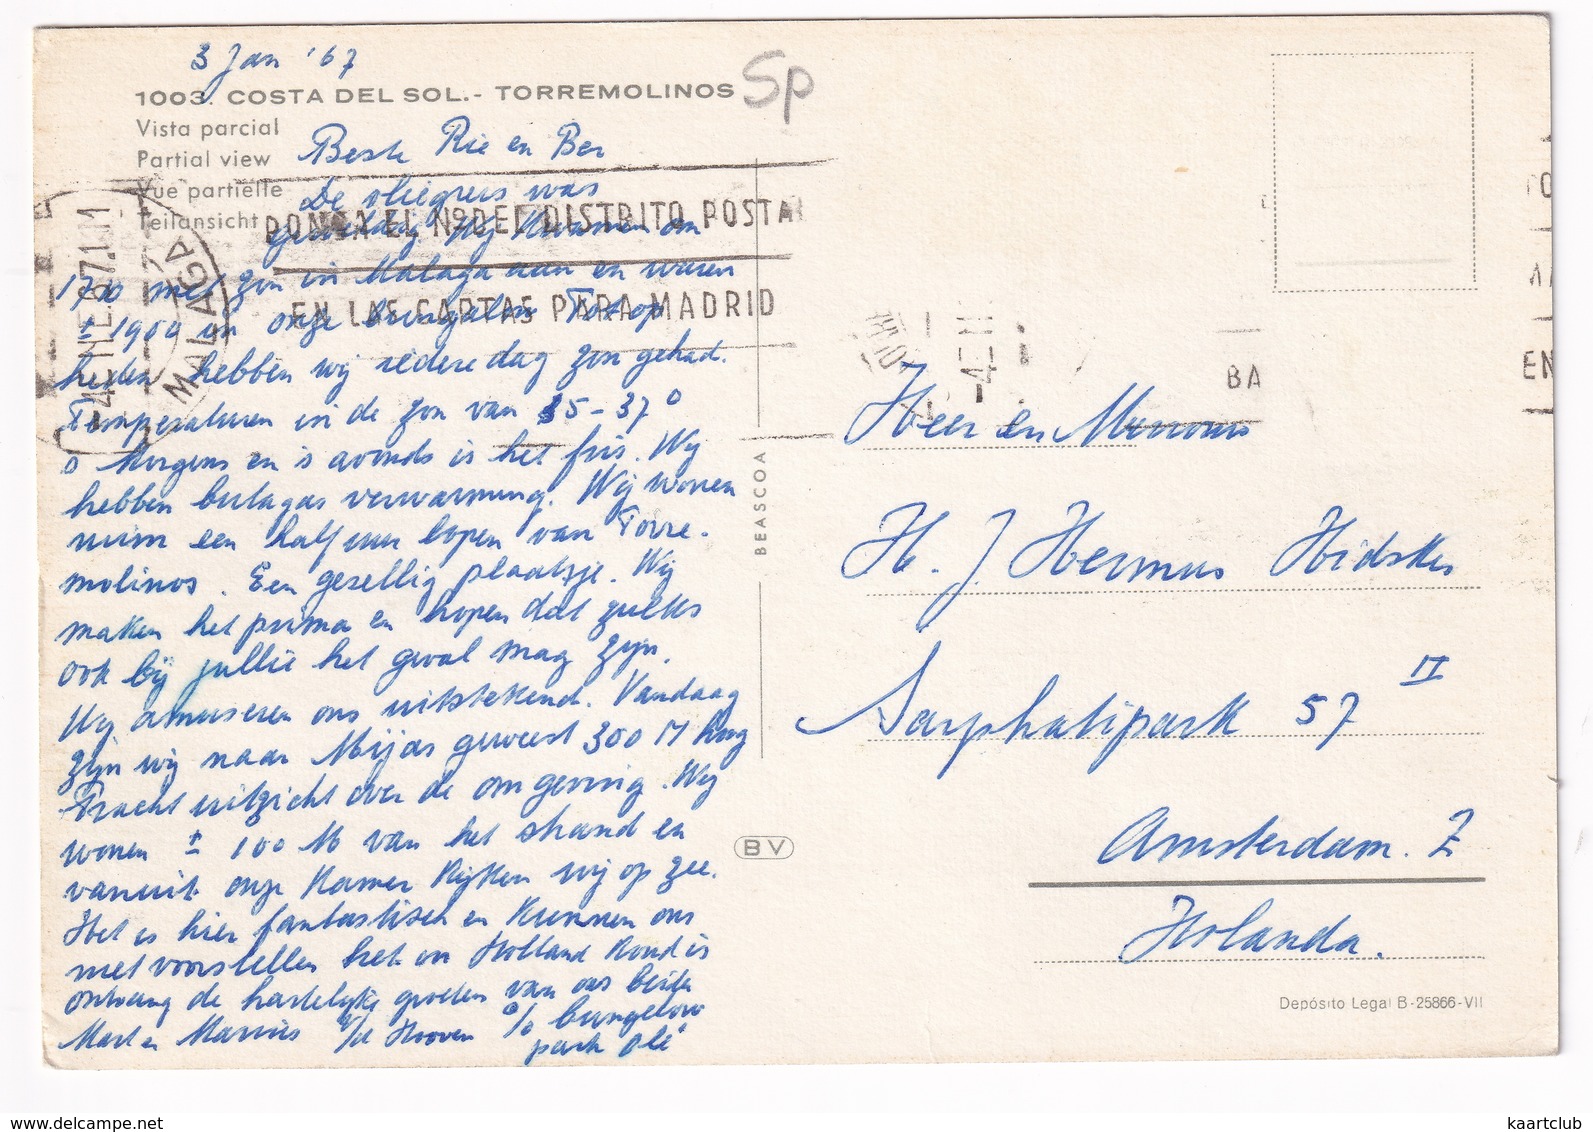 3 Jan '67
1003. COSTA DEL SOL.- TORREMOLINOS
Sp
Vista parcial
Partial view
Vue partielle
Teilansicht
Beste Rie en Ber
De vliegreis was
geweldig. Wij kwamen om
1730 met zon in Malaga aan en waren
± 1900 in onze bungalow. Tot op
heden hebben wij iedere dag zon gehad.
Temperaturen in de zon van 35-37°
's Morgens en 's avonds is het fris. Wij
hebben butagas verwarming. Wij wonen
ruim een half uur lopen van Torre-
molinos. Een gezellig plaatsje. Wij
maken het prima en hopen dat zulks
ook bij jullie het geval mag zijn.
Wij amuseren ons uitstekend. Vandaag
zijn wij naar Mijas geweest 300 M hoog
Pracht uitzicht over de omgeving. Wij
wonen ± 100 M van het strand en
vanuit onze kamer kijken wij op zee.
Het is hier fantastisch en kunnen ons
niet voorstellen het in Holland koud is
ontvang de hartelijke groeten van ons beiden
Mart en Marius v/d Hoven p/o bungelow
park Olé"
PONGA EL Nº DEL DISTRITO POSTAL
EN LAS CARTAS PARA MADRID
-4.ENE.67.11
MALAGA
BEASCOA
BV
-4.E
BA
EN
Heer en Mevrouw
H. J. Hermus Hidskes
Sarphatipark 57 II
Amsterdam. Z
Holanda.
Depósito Legal B-25866-VII
kaartclub
www.delcampe.net